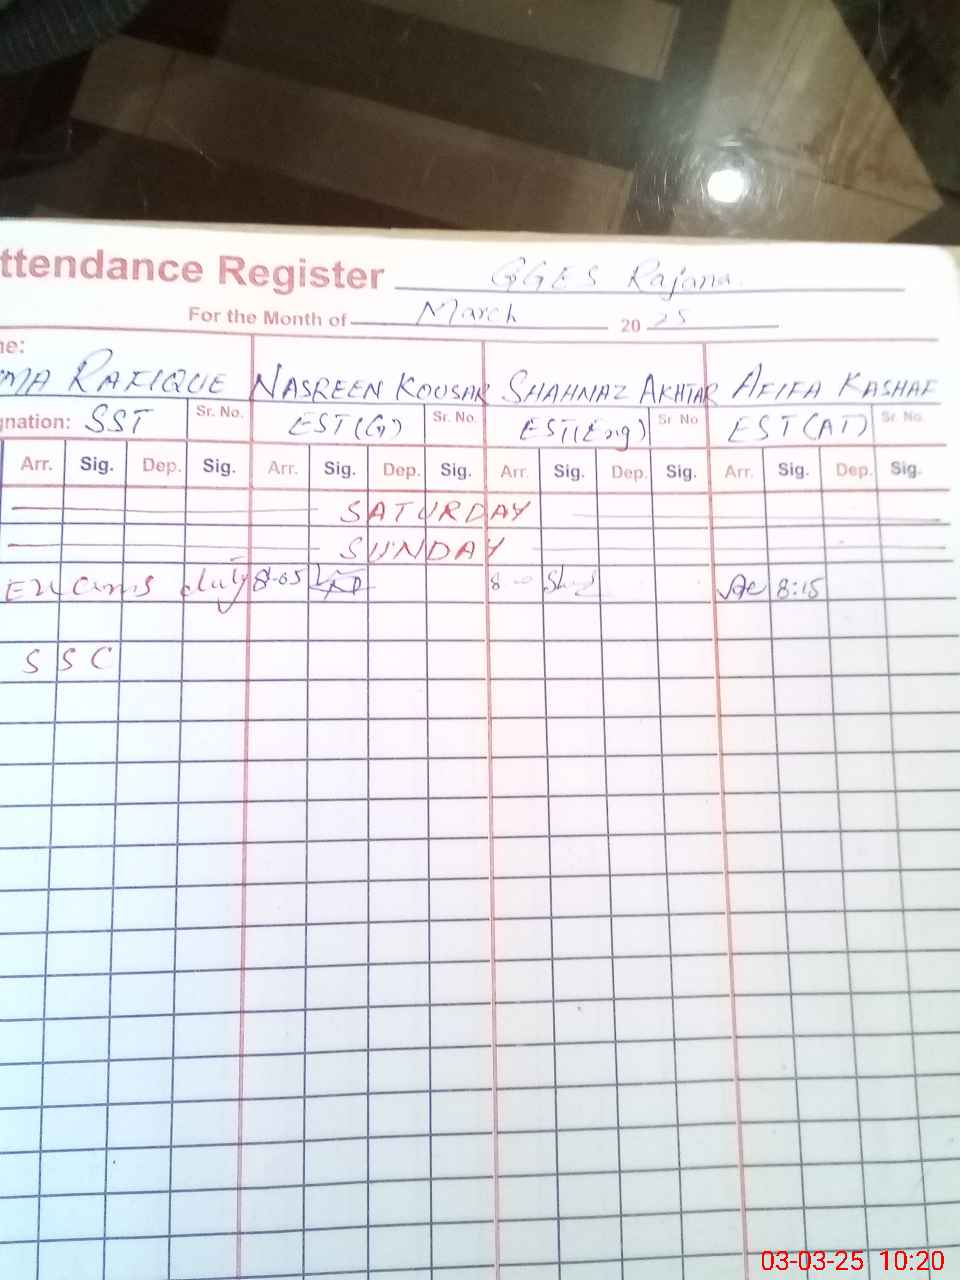 ttendance Register GGES Rajana
For the Month of March 20 25
ne:
MA RAFIQUE NASREEN KOUSAR SHAHNAZ AKHTAR AFIFA KASHAF
gnation: SST Sr. No. EST(G) Sr. No. EST(Eng) Sr No EST(AT) Sr No.
Arr. Sig. Dep. Sig. Arr. Sig. Dep. Sig. Arr. Sig. Dep. Sig. Arr. Sig. Dep. Sig.
SATURDAY
SUNDAY
Exams duty 8-05 8 8:15
SSC
03-03-25 10:20